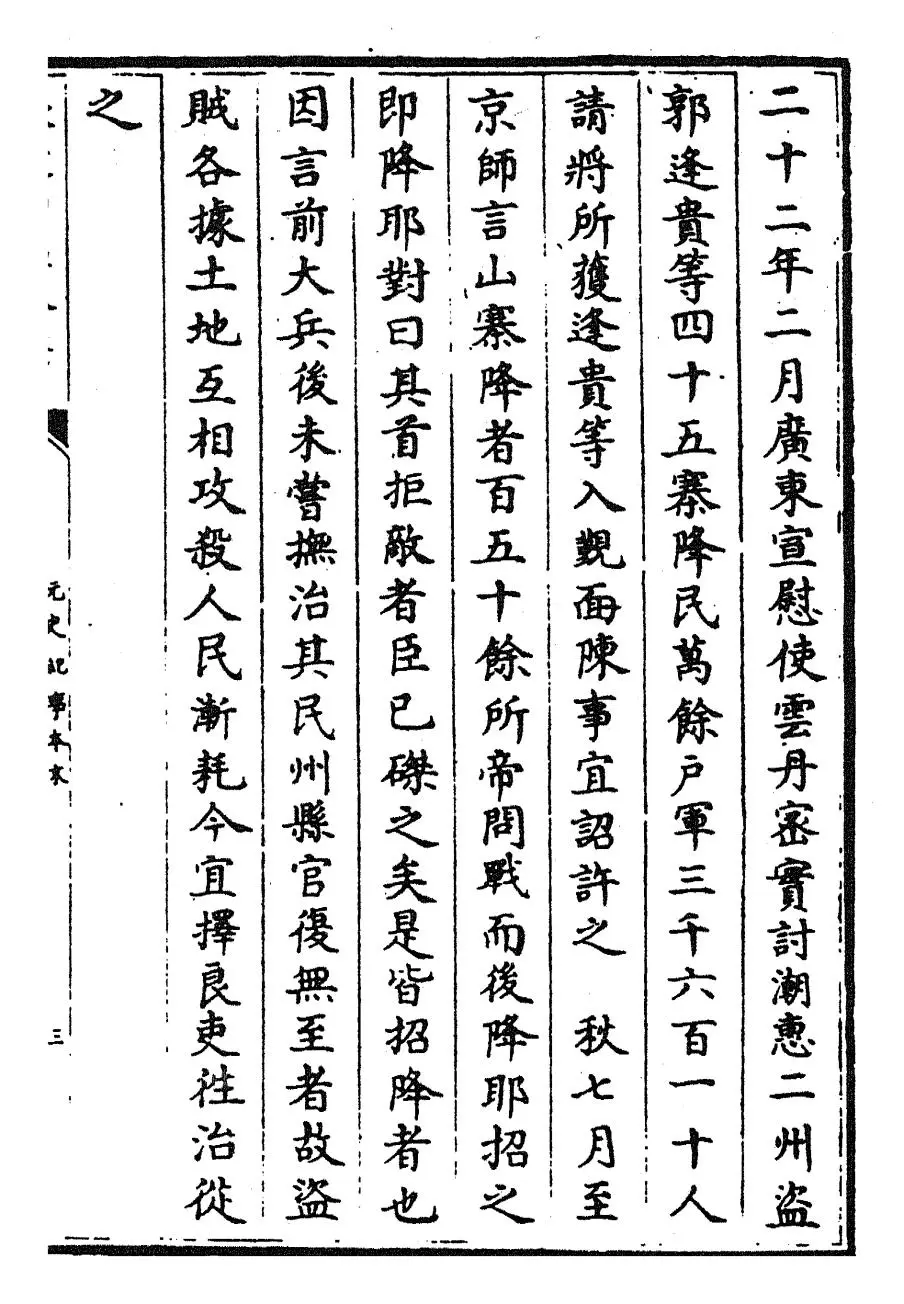 二十二年二月廣東宣慰使雲丹密實討潮惠二州盜
郭逢貴等四十五寨降民萬餘戸軍三千六百一十人
請將所獲逢貴等入覲面陳事宜詔許之　秋七月至
京師言山寨降者百五十餘所帝問戰而後降耶招之
即降耶對曰其首拒敵者臣已磔之矣是皆招降者也
因言前大兵後未嘗撫治其民州縣官復無至者故盜
賊各據土地互相攻殺人民漸耗今宜擇良吏往治從
之
元史紀事本末
三